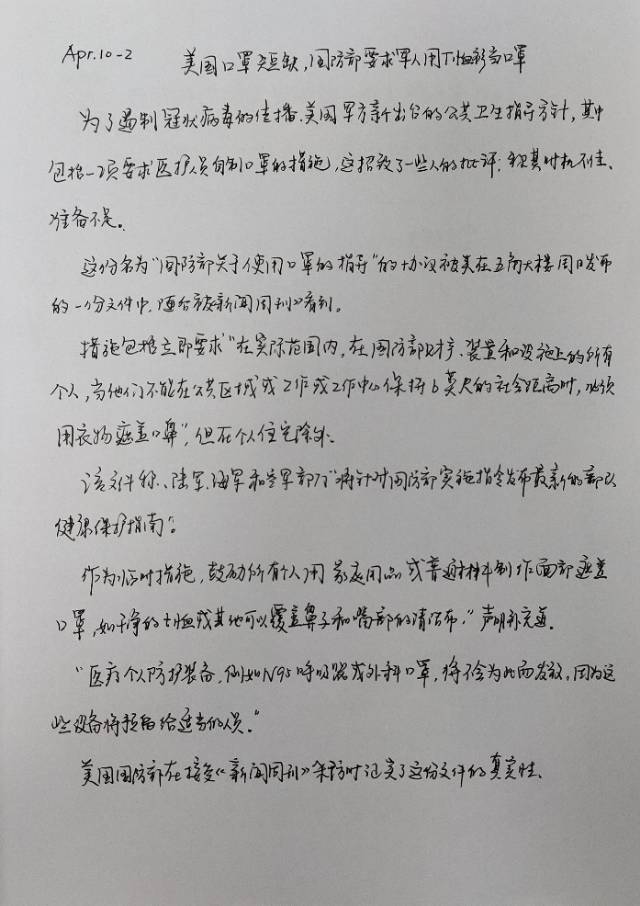 Apr.10-2 美国口罩短缺,国防部要求军人用T恤衫当口罩
为了遏制冠状病毒的传播,美国军方新出台的公共卫生指导方针,其中
包括一项要求医护人员自制口罩的措施,这招致了一些人的批评:称其时机不佳、
准备不足。
这份名为“国防部关于使用口罩的指导”的协议被美在五角大楼周日发布
的一份文件中,随后被新闻周刊》看到。
措施包括立即要求“在实际范围内,在国防部财产、装置和设施上的所有
个人,当他们不能在公共区域或工作或工作中心保持6英尺的社会距离时,必须
用衣物遮盖口鼻”,但在个人住宅除外。
该文件称、陆军、海军和空军部门“将针对国防部实施指令发布最新的部队
健康保护指南”。
作为临时措施,鼓励所有个人用家庭用品或普通材料制作面部遮盖
口罩,如干净的t恤或其他可以覆盖鼻子和嘴部的清洁布,”声明补充道。
“医疗个人防护装备,例如N95呼吸器或外科口罩,将不会为此而发放,因为这
些设备将预留给适当的人员。”
美国国防部在接受《新闻周刊》采访时证实了这份文件的真实性。